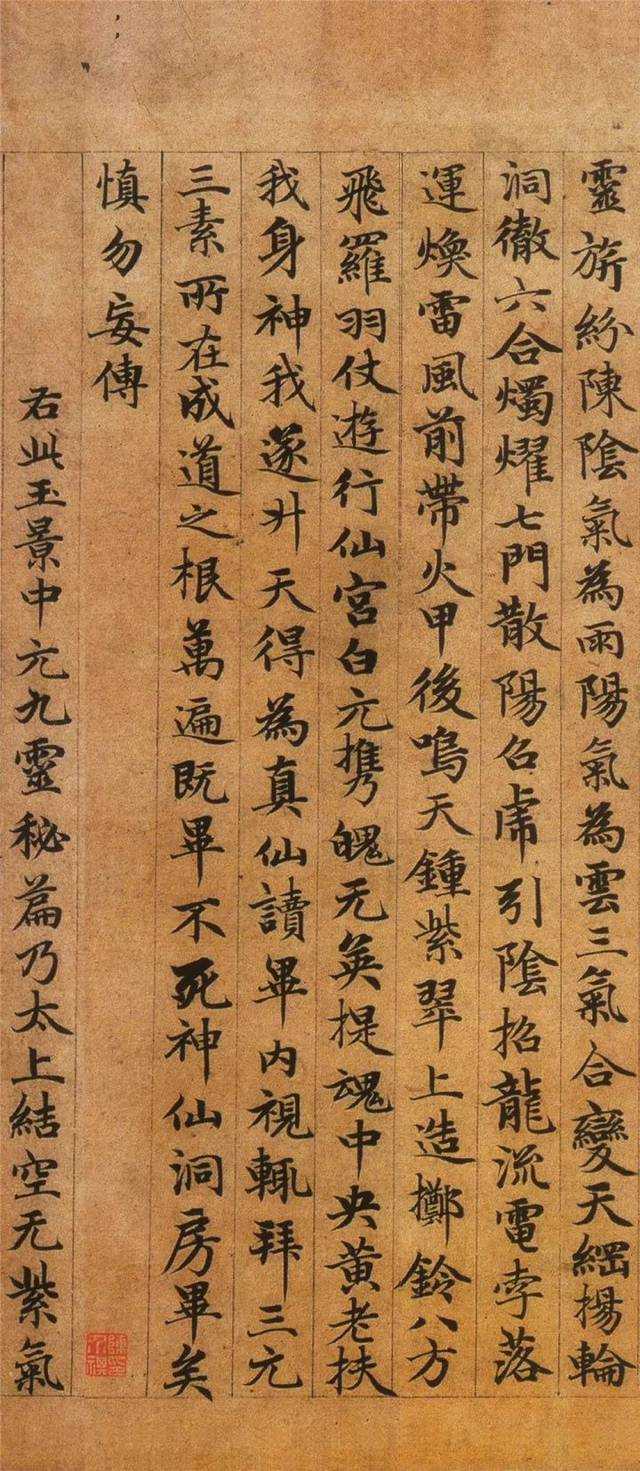 靈旂紛陳陰氣為雨陽氣為雲三氣合變天綱揚輪
洞徹六合燭燿七門散陽召虎引陰招龍流電孛落
運煥雷風前帶火甲後嗚天鍾紫翠上造擲鈴八方
飛羅羽仗遊行仙宮白元攜魄无英提魂中央黃老扶
我身神我遂升天得為真仙讀畢內視輒拜三元
三素所在成道之根萬遍既畢不死神仙洞房畢矣
慎勿妄傳
右此玉景中元九靈秘篇乃太上結空无紫氣